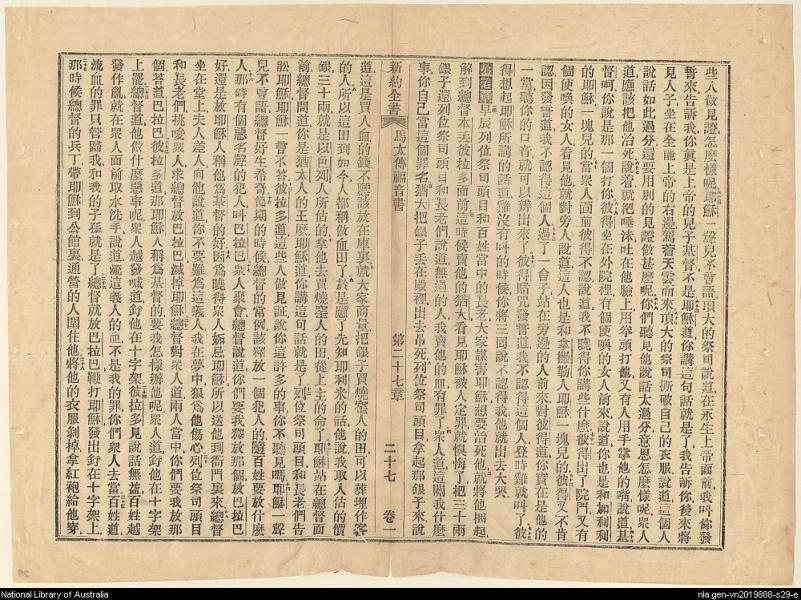 些人做見證怎麼樣呢耶穌一聲兒不言語頂大的祭司說道在永生上帝面前我叫你發
誓來告訴我你眞是上帝的兒子基督不是耶穌道你講這句話就是了我告訴你後來將
見人子坐在全能上帝的右邊駕着天雲而來頂大的祭司撕破自己的衣服說道這個人
說話如此過分還要用別的見證做甚麼呢你們聽見他說話太過分意思怎麼樣呢衆人
道應該把他治死說着就把唾沫吐在他臉上用拳頭打他又有人用手掌他的嘴說道基
督呵你說是那一個打你彼得坐在外院裡有個使喚的女人前來說道你也是和加利利
的耶穌一塊兒的當衆人面前彼得不認說道我不曉得你講些什麼彼得出了院門又有
個使喚的女人看見他就對旁人說道這人也是和拿撒勒人耶穌一塊兒的彼得又不肯
認因發誓道我不認得這個人過了一會子站在旁邊的人前來對彼得道你實在是他的
一黨聽你的口音就可以辨出來了彼得賭咒發誓道我不認得這個人登時雞就叫了彼
得想起耶穌所講的話道雞沒有叫的時候你將三回說不認得我他就出去大哭
早辰列位祭司頭目和百姓當中的長老大家謀害耶穌想要治死他就將他捆起
解到總督本丟彼拉多面前這時候賣他的猶大看見耶穌被人定罪就懊悔了把三十兩
銀子還列位祭司頭目和長老們說道無過的人我賣他的血有罪了衆人道這關我什麼
事你自己當這個罪名猶大把銀子丟在殿裡出去吊死列位祭司頭目拿起那銀子來說
新約全書 馬太傳福音書 第二十七章 二十七 卷一
道這是買人血的錢不應該放在庫裏就大家商量把銀子買燒窰人的田可以葬埋作客
的人所以這田到如今人都稱做血田了於是應了先知耶利米的話他說我取人估的價
銀三十兩就是以色列人所估的拿他去買燒窰人的田從上主的命了耶穌站在總督面
前總督問道你是猶太人的王麼耶穌道你講這句話就是了列位祭司頭目和長老們告
訟耶穌耶穌一言不答彼拉多道這些人做見証說你這許多的事你不聽見嗎耶穌一聲
兒不言語總督好生希奇節期的時候總督的當例該釋放一個犯人的隨百姓要放什麼
人那時有個惡名聲的犯人叫巴拉巴衆人聚會總督說道你們要我釋放那個放巴拉巴
好還是放耶穌人稱他爲基督的好因爲曉得衆人妬忌耶穌所以送他到衙門裏來總督
坐在堂上夫人差人向他說道你不要難爲這義人我在夢中狠爲他傷心列位祭司頭目
和長老們挑唆衆人求總督放巴拉巴滅掉耶穌總督對衆人道兩人當中你們要我放那
個答道巴拉巴彼拉多道那耶穌人稱爲基督的要我怎樣辦他呢衆人道釘他在十字架
上罷總督道他做什麼惡事呢衆人越發喊道釘他在十字架彼拉多見說話無益百姓越
發作亂就在衆人面前取水洗手說道流這義人的血不是我的罪你們衆人去當百姓道
流血的罪只管歸我和我的子孫就是了總督就放巴拉巴鞭打耶穌發出釘在十字架上
那時候總督的兵丁帶耶穌到公館裏通營的人圍住他將他的衣服剝掉拿紅袍給他穿
National Library of Australia
nla.gen-vn2019888-s29-e